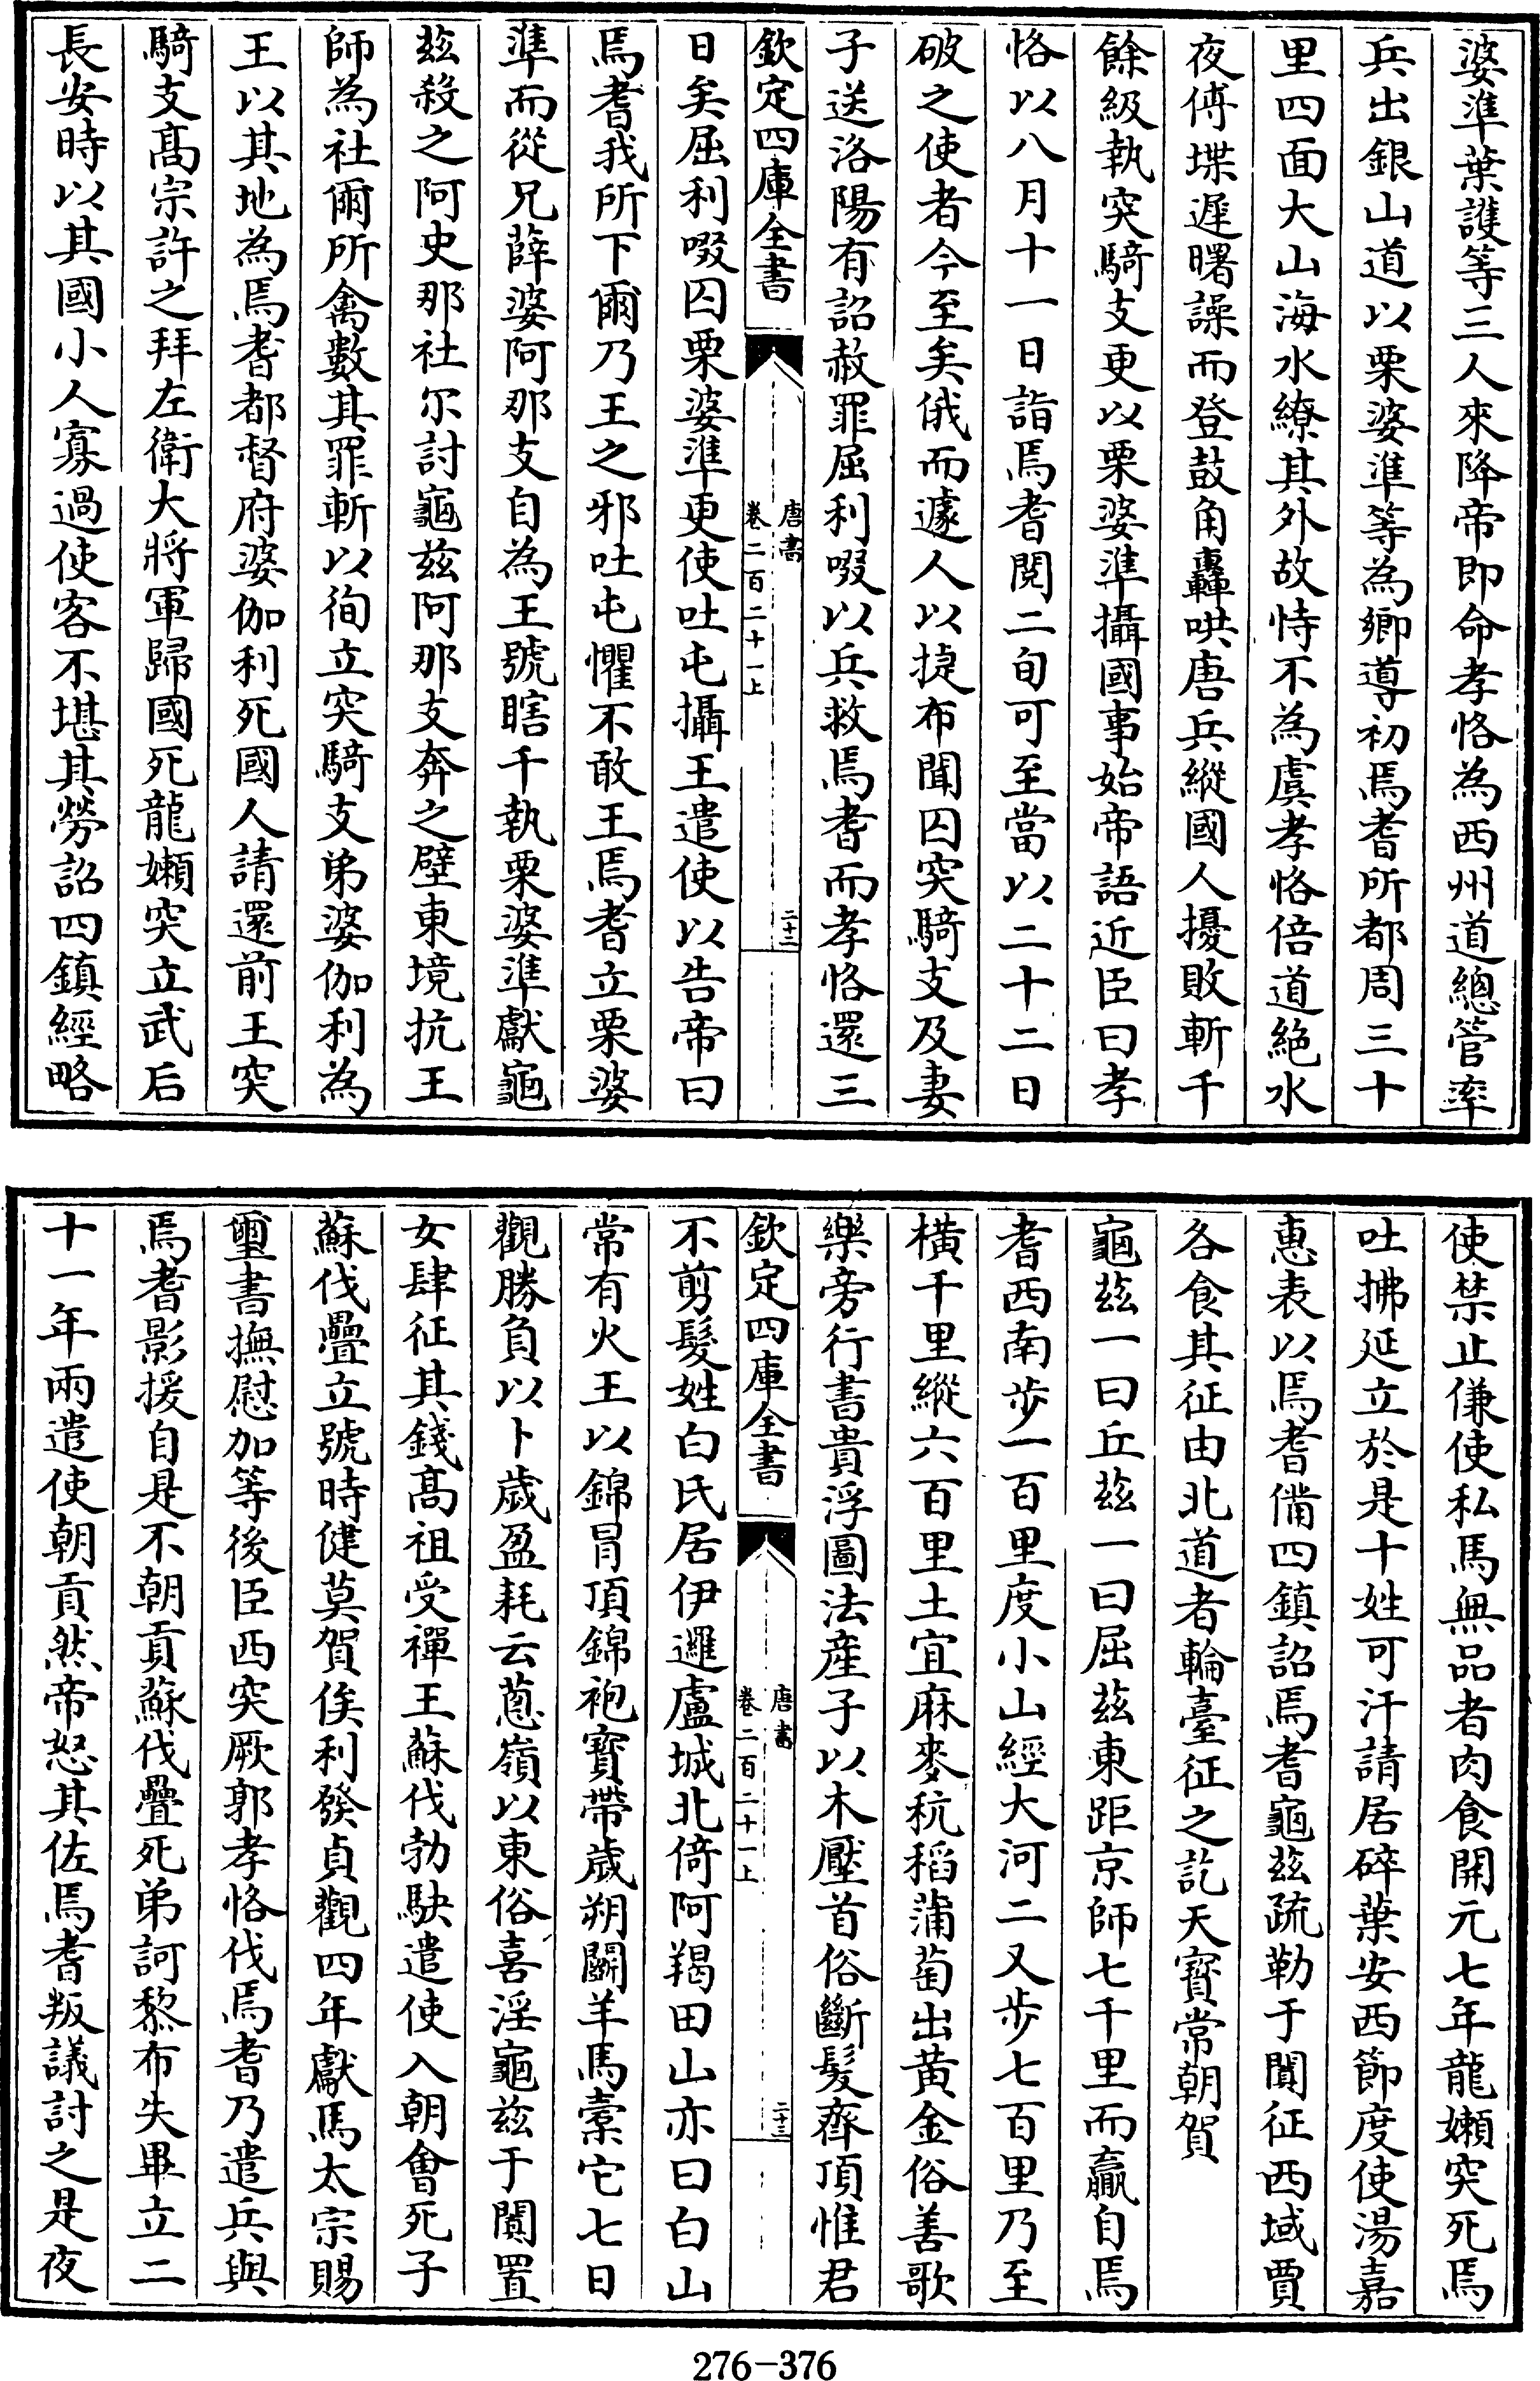 婆準葉護等三人來降帝即命孝恪為西州道總管率
兵出銀山道以栗婆準等為鄉導初焉耆所都周三十
里四面大山海水繚其外故恃不為虞孝恪倍道絶水
夜傅堞遲曙譟而登鼓角轟哄唐兵縱國人擾敗斬千
餘級執突騎支更以栗婆準攝國事始帝語近臣曰孝
恪以八月十一日詣焉耆閱二旬可至當以二十二日
破之使者今至矣俄而遽人以捷布聞囚突騎支及妻
子送洛陽有詔赦罪屈利啜以兵救焉耆而孝恪還三
欽定四庫全書
唐書
卷二百二十一上
二十三
日矣屈利啜囚栗婆準更使吐屯攝王遣使以告帝曰
焉耆我所下爾乃王之邪吐屯懼不敢王焉耆立栗婆
準而從兄薛婆阿那支自為王號瞎千執栗婆準獻龜
茲殺之阿史那社尔討龜茲阿那支奔之壁東境抗王
師為社爾所禽數其罪斬以徇立突騎支弟婆伽利為
王以其地為焉耆都督府婆伽利死國人請還前王突
騎支髙宗許之拜左衛大將軍歸國死龍嬾突立武后
長安時以其國小人寡過使客不堪其勞詔四鎮經略
使禁止傔使私馬無品者肉食開元七年龍嬾突死焉
吐拂延立於是十姓可汗請居碎葉安西節度使湯嘉
惠表以焉耆備四鎮詔焉耆龜茲疏勒于闐征西域賈
各食其征由北道者輪臺征之訖天寳常朝賀
龜茲一曰丘茲一曰屈茲東距京師七千里而贏自焉
耆西南步一百里度小山經大河二又步七百里乃至
横千里縱六百里土宜麻麥秔稻蒲萄出黄金俗善歌
樂旁行書貴浮圖法産子以木壓首俗斷髮齊頂惟君
欽定四庫全書
唐書
卷二百二十一上
二十三
不剪髮姓白氏居伊邏盧城北倚阿羯田山亦曰白山
常有火王以錦冒頂錦袍寳帶歲朔鬬羊馬橐它七日
觀勝負以卜歲盈耗云葱嶺以東俗喜淫龜茲于闐置
女肆征其錢髙祖受禪王蘇伐勃駃遣使入朝會死子
蘇伐疊立號時健莫賀俟利發貞觀四年獻馬太宗賜
璽書撫慰加等後臣西突厥郭孝恪伐焉耆乃遣兵與
焉耆影援自是不朝貢蘇伐疊死弟訶黎布失畢立二
十一年兩遣使朝貢然帝怒其佐焉耆叛議討之是夜
276-376